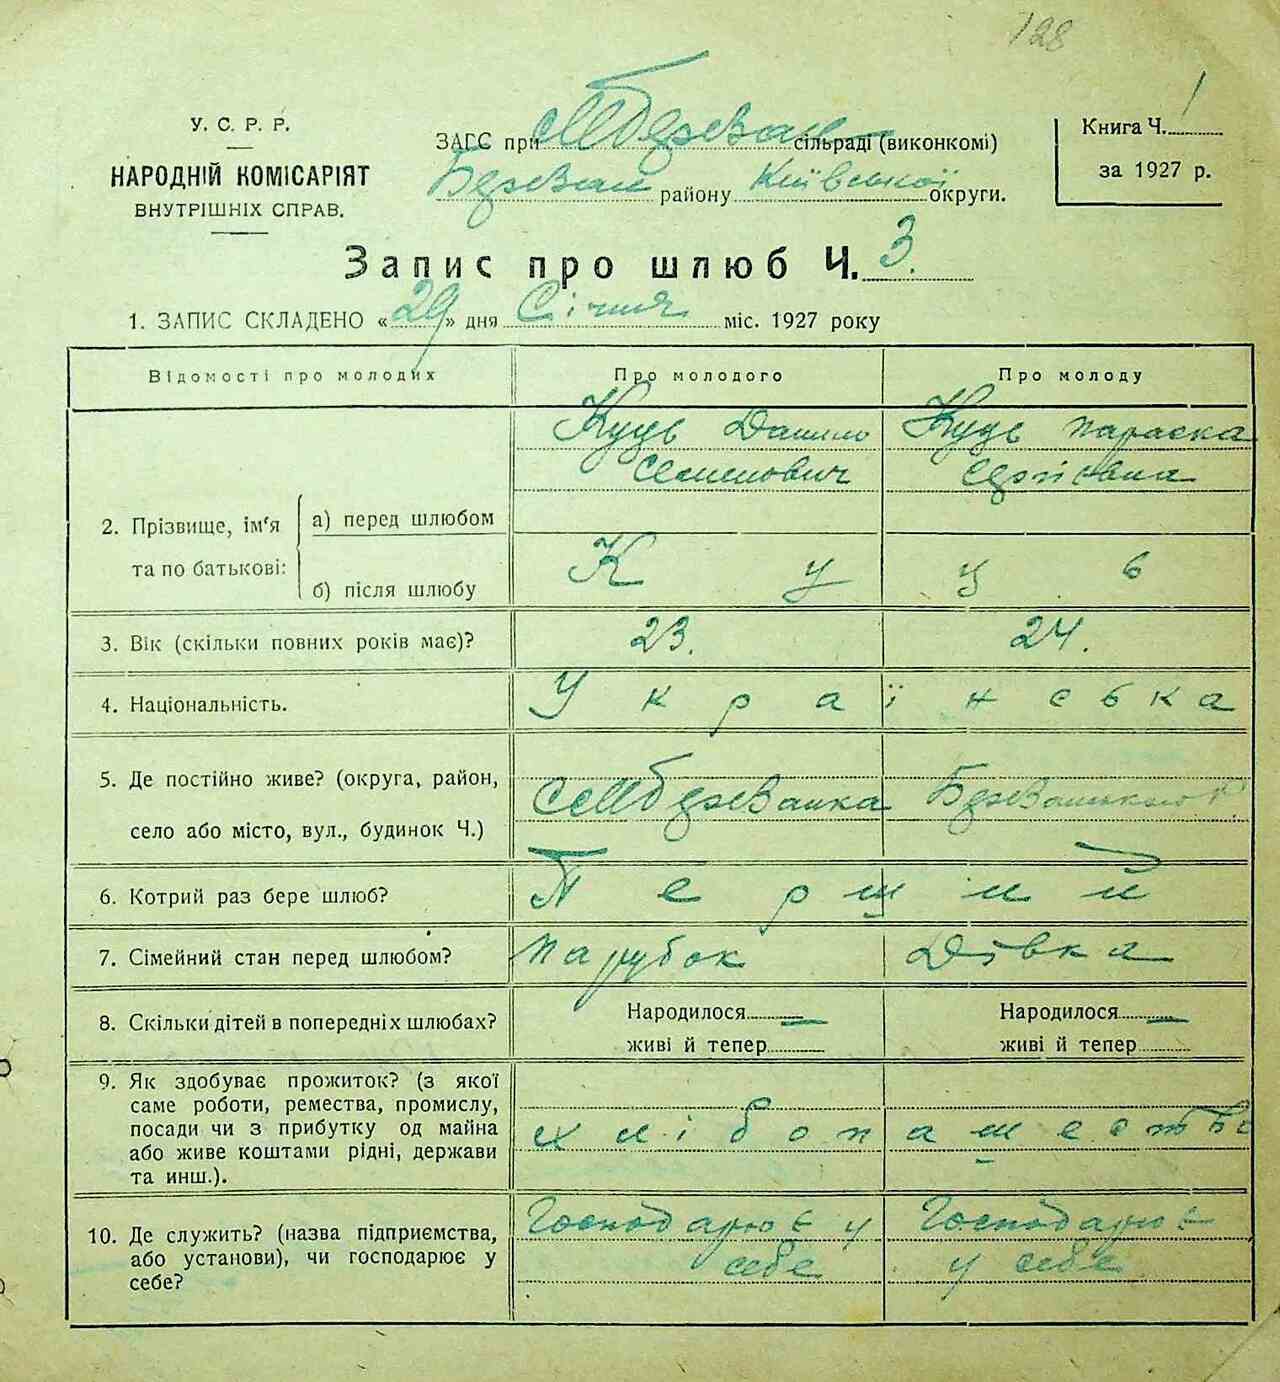 128
У. С. Р. Р.
НАРОДНІЙ КОМІСАРІЯТ
ВНУТРІШНІХ СПРАВ.
ЗАГС при сМБерезан сільраді (виконкомі)
Березан району Київської округи.
Книга Ч. 1
за 1927 р.
Запис про шлюб Ч. 3.
1. ЗАПИС СКЛАДЕНО «29» дня Січня міс. 1927 року
Відомості про молодих Про молодого Про молоду
Куць Данило Куць Параска
Семенович Сергіївна
2. Прізвище, ім'я та по батькові:
а) перед шлюбом
б) після шлюбу
К у ц ь
3. Вік (скільки повних років має)? 23. 24.
4. Національність. У к р а ї н с ь к а
5. Де постійно живе? (округа, район,
село або місто, вул., будинок Ч.)
сМБерезанка Березанського Р
6. Котрий раз бере шлюб? П е р ш и й
7. Сімейний стан перед шлюбом? парубок Дівка
8. Скільки дітей в попередніх шлюбах? Народилося — Народилося —
живі й тепер живі й тепер
9. Як здобуває прожиток? (з якої
саме роботи, ремества, промислу,
посади чи з прибутку од майна
або живе коштами рідні, держави
та инш.).
х л і б о п а ш е с т в о
10. Де служить? (назва підприємства,
або установи), чи господарює у
себе?
Господарює у Господарює
себе у себе